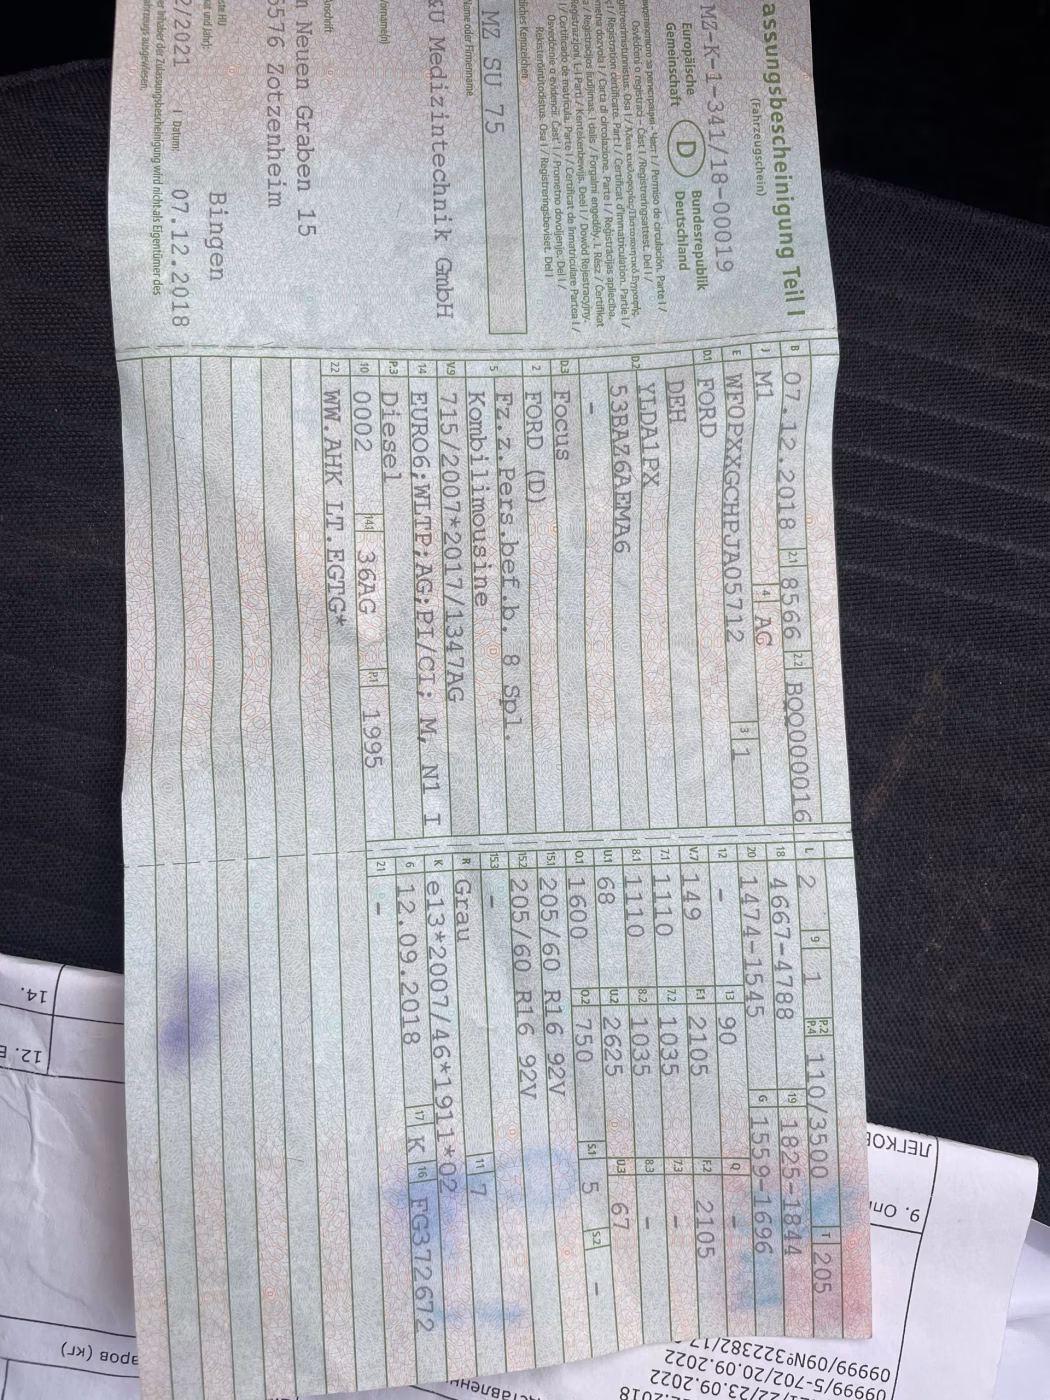 assungsbescheinigung Teil I
(Fahrzeugschein)
MZ-K-1-341/18-00019
Europäische Gemeinschaft
D
Bundesrepublik Deutschland
MZ SU 75
Name oder Firmenname
&U Medizintechnik GmbH
Vorname(n)
n Neuen Graben 15
5576 Zotzenheim
Bingen
2/2021
Datum:
07.12.2018
B 07.12.2018 2.1 8566 2.2 BQQ000016
J M1 4 AG
E WF0PXXGCHPJA05712 3 1
D.1 FORD
DEH
D.2 YLDA1PX
53BAZ6AEMA6
-
D.3 Focus
2 FORD (D)
5 Fz.z.Pers.bef.b. 8 Spl.
Kombilimousine
V.9 715/2007*2017/1347AG
14 EURO6;WLTP;AG;PI/CI; M, N1 I
P.3 Diesel
10 0002 14.1 36AG P.1 1995
22 WW.AHK LT.EGTG*
L 2 9 1 P.2 P.4 110/3500 T 205
18 4667-4788 19 1825-1844
20 1474-1545 G 1559-1696
12 - 13 90 Q -
V.7 149 F.1 2105 F.2 2105
7.1 1110 7.2 1035 7.3 -
8.1 1110 8.2 1035 8.3 -
U.1 68 U.2 2625 U.3 67
O.1 1600 O.2 750 S.1 5 S.2 -
15.1 205/60 R16 92V
15.2 205/60 R16 92V
15.3 -
R Grau 11 7
K e13*2007/46*1911*02
6 12.09.2018 17 K 16 FG372672
21 -
14.
12.
ЛЕГКОВ
09999/5-702/20.09.2022